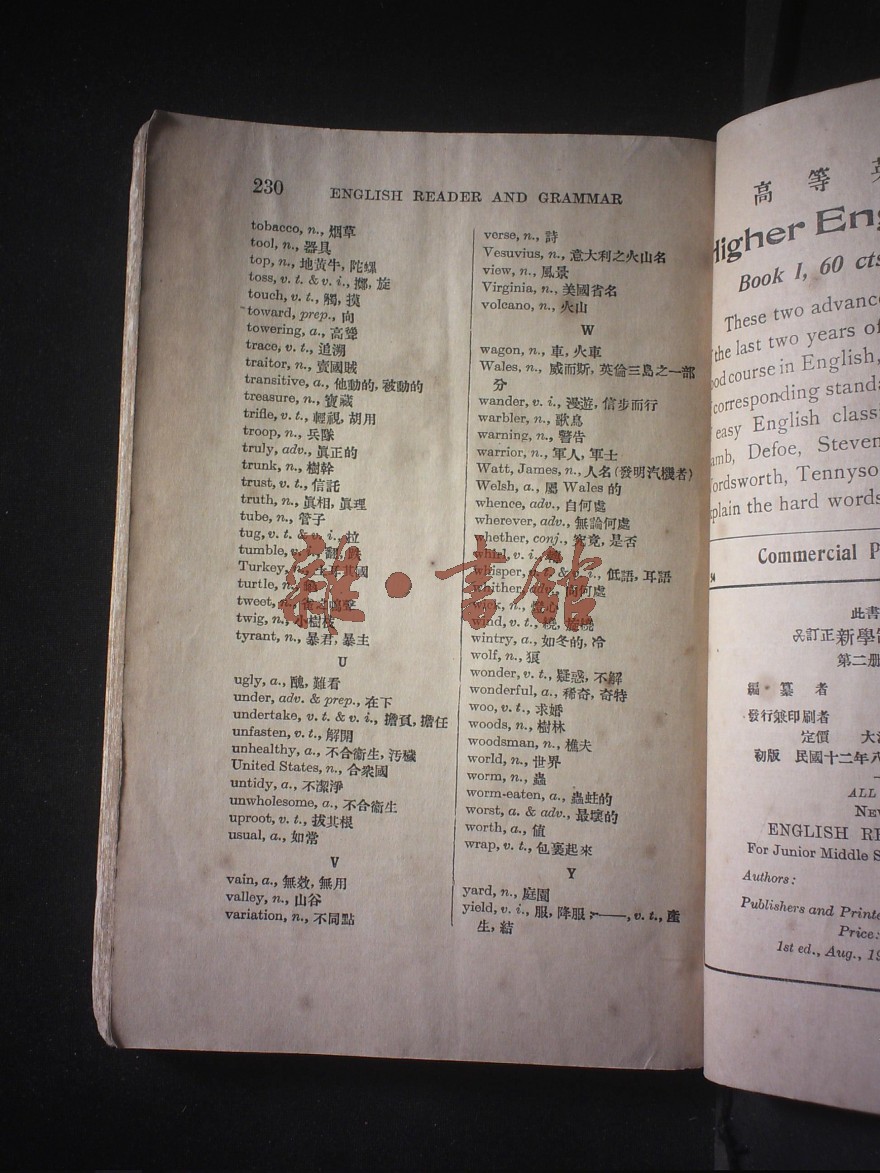 230
ENGLISH READER AND GRAMMAR
tobacco, n., 烟草
tool, n., 器具
top, n., 地黃牛, 陀螺
toss, v. t. & v. i., 擲, 旋
touch, v. t., 觸, 摸
toward, prep., 向
towering, a., 高聳
trace, v. t., 追溯
traitor, n., 賣國賊
transitive, a., 他動的, 被動的
treasure, n., 寶藏
trifle, v. t., 輕視, 胡用
troop, n., 兵隊
truly, adv., 眞正的
trunk, n., 樹幹
trust, v. t., 信託
truth, n., 眞相, 眞理
tube, n., 管子
tug, v. t. & v. i., 拉
tumble, v. 翻, 跌
Turkey, 土耳其國
turtle, n.
tweet, n., 雀之鳴聲
twig, n., 小樹枝
tyrant, n., 暴君, 暴主
U
ugly, a., 醜, 難看
under, adv. & prep., 在下
undertake, v. t. & v. i., 擔負, 擔任
unfasten, v. t., 解開
unhealthy, a., 不合衞生, 汚穢
United States, n., 合衆國
untidy, a., 不潔淨
unwholesome, a., 不合衞生
uproot, v. t., 拔其根
usual, a., 如常
V
vain, a., 無效, 無用
valley, n., 山谷
variation, n., 不同點
verse, n., 詩
Vesuvius, n., 意大利之火山名
view, n., 風景
Virginia, n., 美國省名
volcano, n., 火山
W
wagon, n., 車, 火車
Wales, n., 威而斯, 英倫三島之一部
分
wander, v. i., 漫遊, 信步而行
warbler, n., 歌鳥
warning, n., 警告
warrior, n., 軍人, 軍士
Watt, James, n., 人名 (發明汽機者)
Welsh, a., 屬 Wales 的
whence, adv., 自何處
wherever, adv., 無論何處
whether, conj., 究竟, 是否
whirl, v. i.,
whisper, & v. i., 低語, 耳語
whither, adv., 向何處
wick, n., 燈心
wind, v. t., 繞, 旋繞
wintry, a., 如冬的, 冷
wolf, n., 狼
wonder, v. t., 疑惑, 不解
wonderful, a., 稀奇, 奇特
woo, v. t., 求婚
woods, n., 樹林
woodsman, n., 樵夫
world, n., 世界
worm, n., 蟲
worm-eaten, a., 蟲蛀的
worst, a. & adv., 最壞的
worth, a., 値
wrap, v. t., 包裹起來
Y
yard, n., 庭園
yield, v. i., 服, 降服; ——, v. t., 產
生, 結
雜·書館
高等英
Higher Eng
Book I, 60 cts
These two advanc
the last two years of
ood course in English,
corresponding standa
easy English classi
amb, Defoe, Steven
ordsworth, Tennyso
plain the hard words
Commercial P
此書
訂正新學
第二册
編纂者
發行兼印刷者
定價 大洋
初版 民國十二年八
ALL
NEW
ENGLISH RE
For Junior Middle S
Authors:
Publishers and Printe
Price:
1st ed., Aug., 19